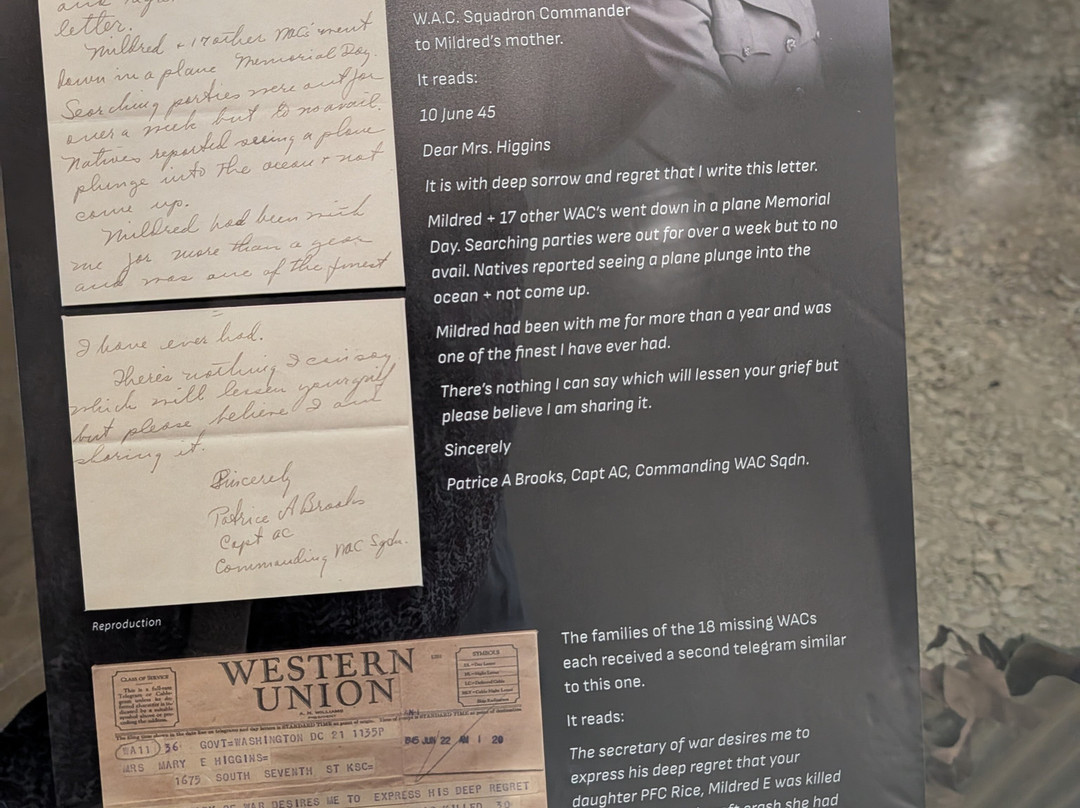 letter.
Mildred + 17 other WAC's went
down in a plane Memorial Day.
Searching parties were out for
over a week but to no avail.
Natives reported seeing a plane
plunge into the ocean + not
come up.
Mildred had been with
me for more than a year
and was one of the finest
I have ever had.
There's nothing I can say
which will lessen your grief
but please believe I am
sharing it.
Sincerely
Patrice A Brooks
Capt AC
Commanding WAC Sqdn.
Reproduction
W.A.C. Squadron Commander
to Mildred's mother.
It reads:
10 June 45
Dear Mrs. Higgins
It is with deep sorrow and regret that I write this letter.
Mildred + 17 other WAC's went down in a plane Memorial
Day. Searching parties were out for over a week but to no
avail. Natives reported seeing a plane plunge into the
ocean + not come up.
Mildred had been with me for more than a year and was
one of the finest I have ever had.
There's nothing I can say which will lessen your grief but
please believe I am sharing it.
Sincerely
Patrice A Brooks, Capt AC, Commanding WAC Sqdn.
CLASS OF SERVICE
This is a full-rate
Telegram or Cable-
gram unless its de-
ferred character is in-
dicated by a suitable
symbol above or pre-
ceding the address.
WESTERN
UNION
A. N. WILLIAMS
PRESIDENT
SYMBOLS
WA11 36 GOVT=WASHINGTON DC 21 1135P
1945 JUN 22 AM 1 20
MRS MARY E HIGGINS=
1675 SOUTH SEVENTH ST KSC=
WAR DESIRES ME TO EXPRESS HIS DEEP REGRET
The families of the 18 missing WACs
each received a second telegram similar
to this one.
It reads:
The secretary of war desires me to
express his deep regret that your
daughter PFC Rice, Mildred E was killed
crash she had